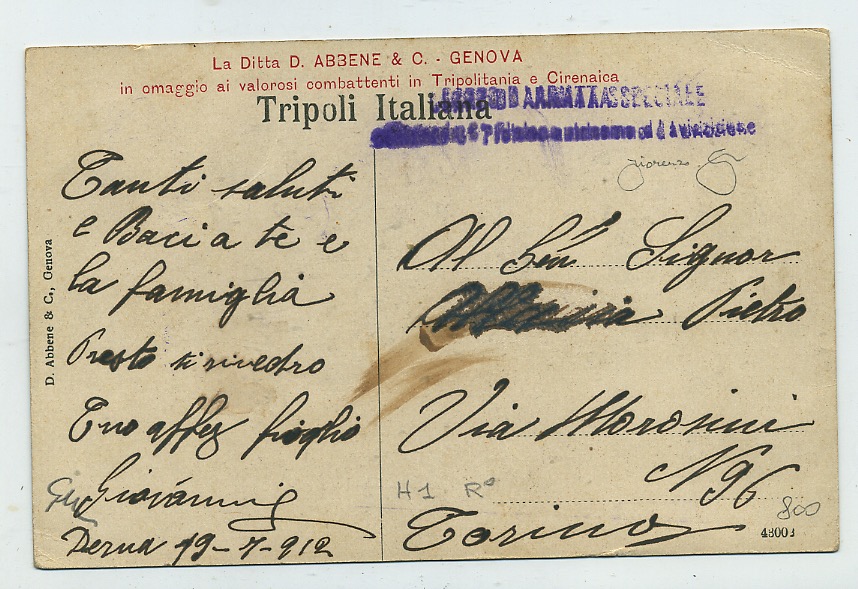 La Ditta D. ABBENE & C. - GENOVA
in omaggio ai valorosi combattenti in Tripolitania e Cirenaica
Tripoli Italiana
SPECIALE
D. Abbene & C., Genova
Tanti saluti
e Baci a te e
la famiglia
Presto ti rivedro
Tuo affez figlio
Giovanni
Derna 19-7-912
Al Sig Signor
Pietro
Via Morosini
N 96
Torino
H1 R°
800
43003